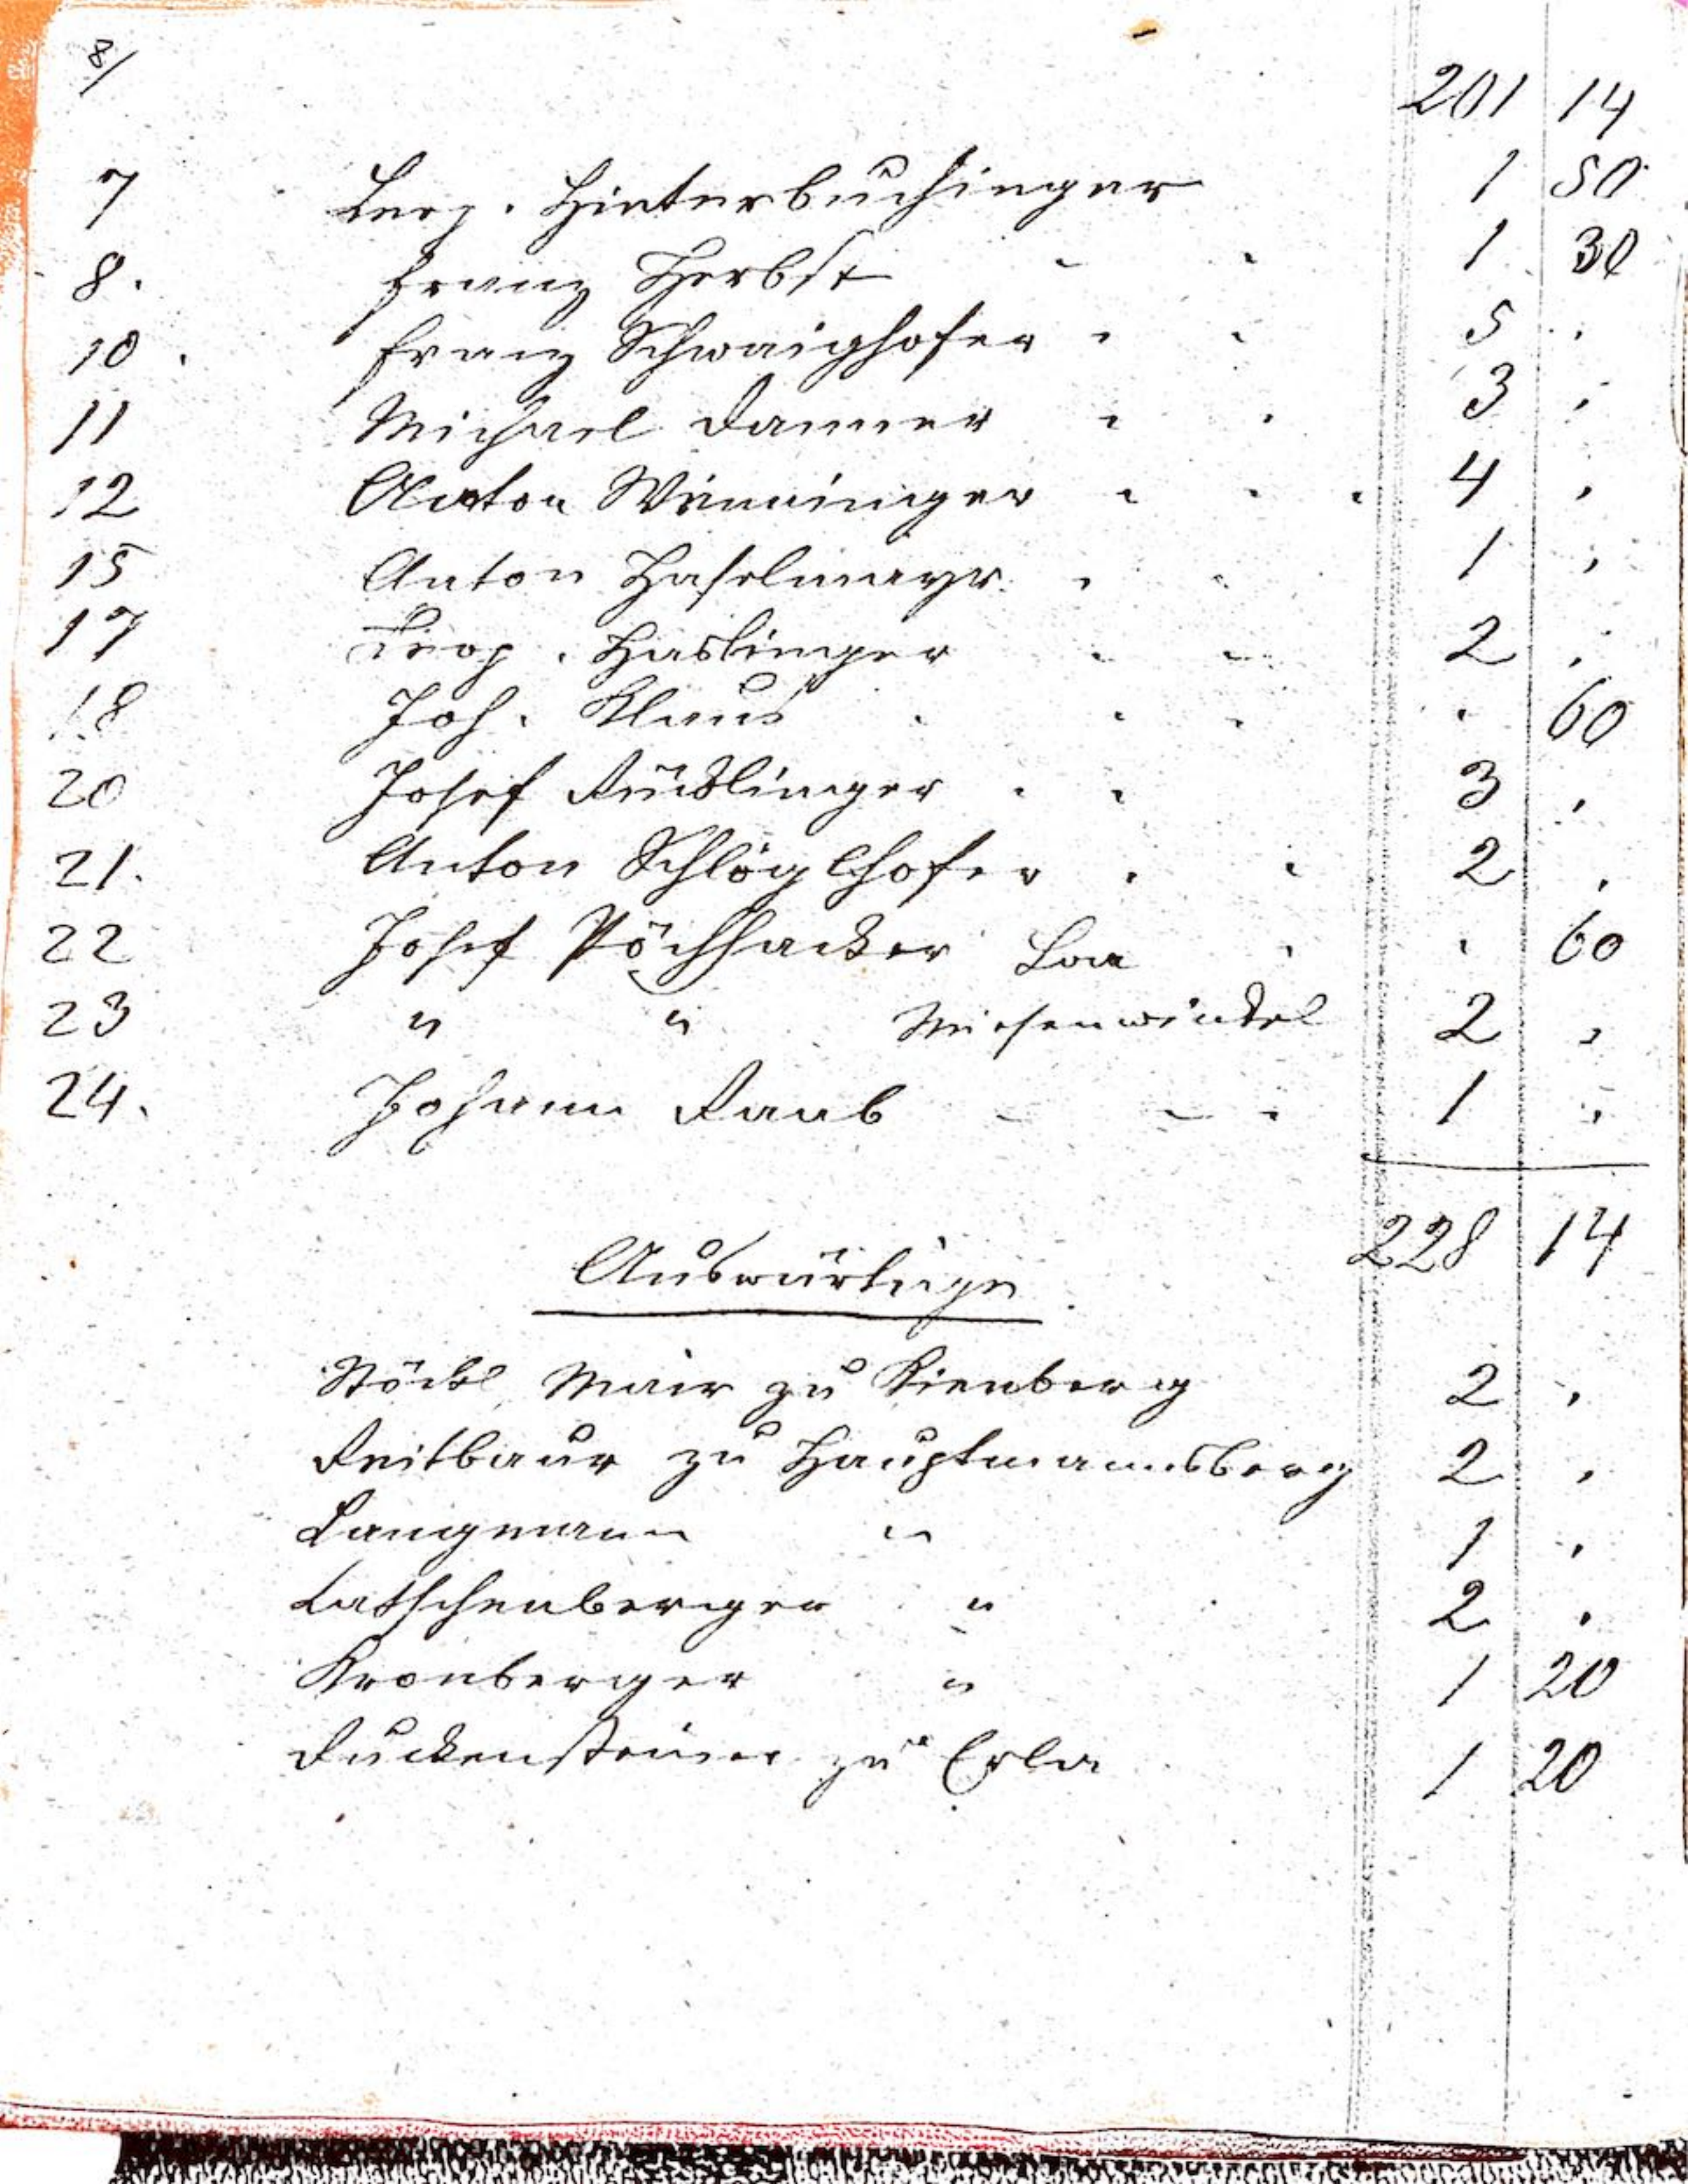 8/
201 14
7 Leop. Hinterbuchinger 1 50
8. Franz Herbst 1 30
10. Franz Schwaighofer 5 .
11 Michael Danner 3 .
12 Anton Winninger 4 .
15 Anton Haselmayr 1 .
17 Leop. Haslinger 2 .
18 Joh. Klaus . 60
20 Josef Rücklinger 3 .
21. Anton Schlöglhofer 2 .
22 Josef Pöchhacker Loa . 60
23 " " Wiesenwinkel 2 .
24. Johann Raab 1 .
228 14
Auswärtige
Stöckl Mair zu Kienberg 2 .
Reitbaur zu Hauptmannsberg 2 .
Langmann " 1 .
Latschenberger " 2 .
Kronberger " 1 20
Duckensteiner zu Erla 1 20